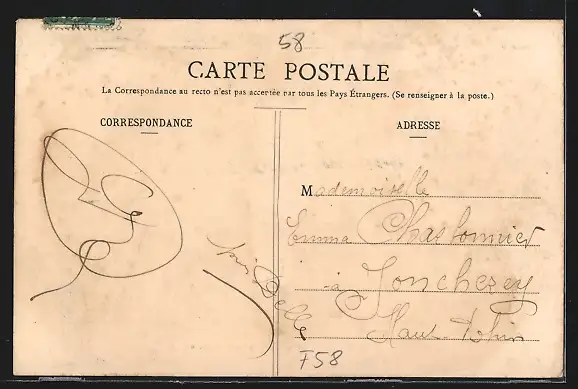 58
CARTE POSTALE
La Correspondance au recto n'est pas acceptée par tous les Pays Étrangers. (Se renseigner à la poste.)
CORRESPONDANCE
ADRESSE
Mademoiselle
Emma Charbonnier
à Joncherey
près Delle
Haut-Rhin
F58